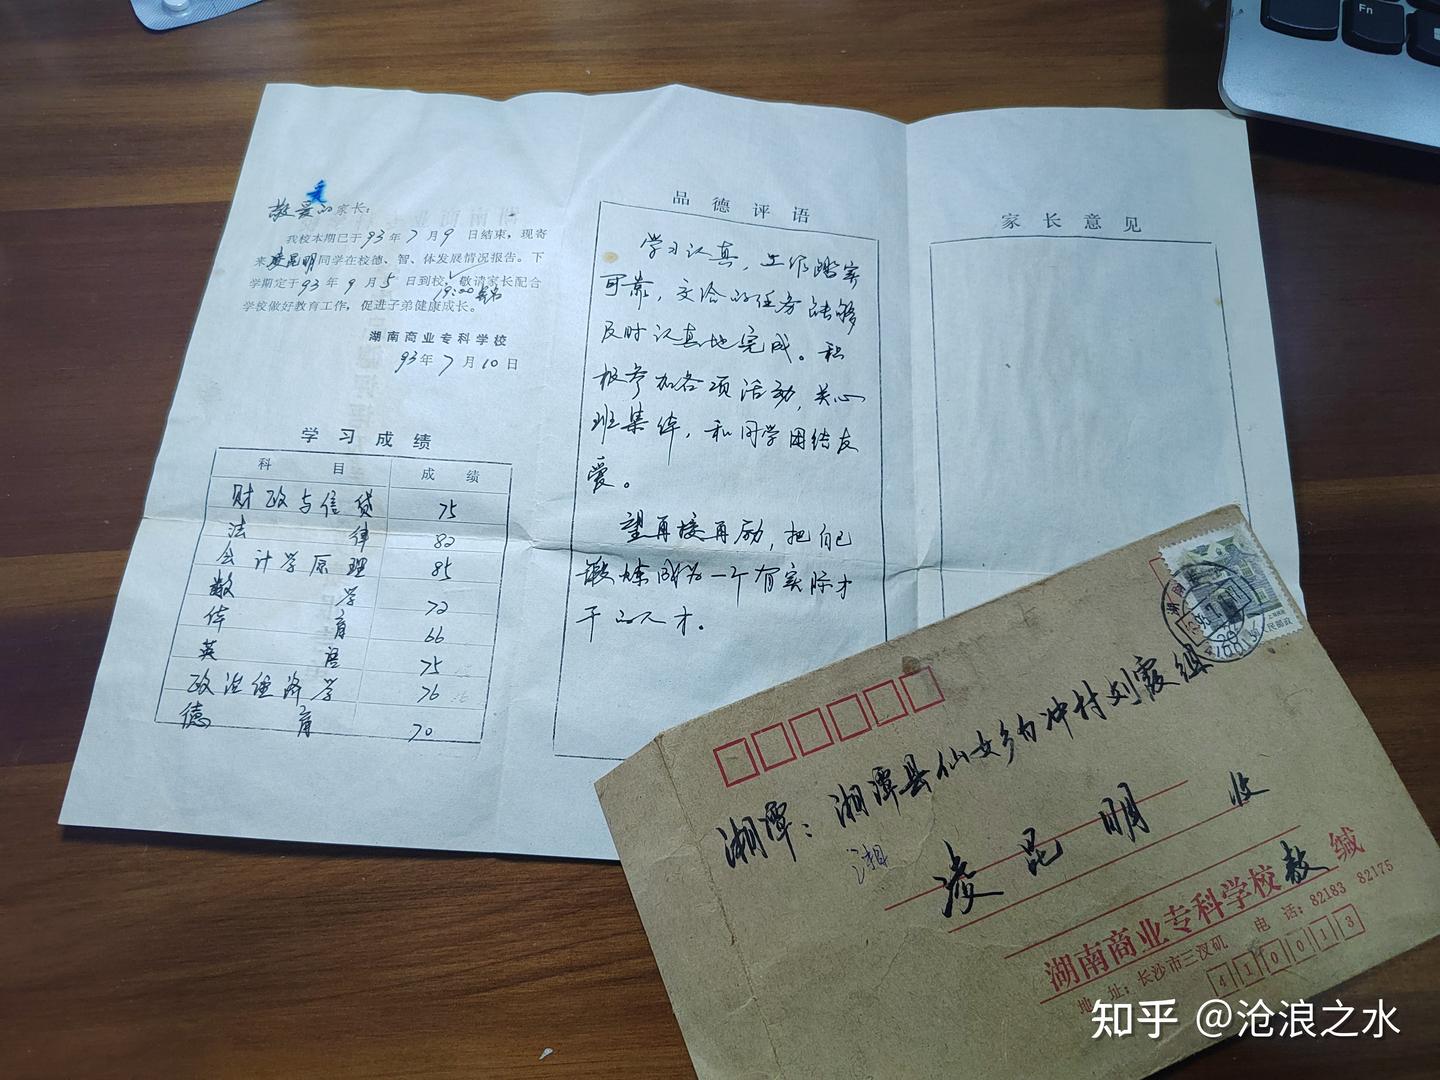 敬爱的家长：
我校本期已于93年7月9日结束，现寄
来凌昆明同学在校德、智、体发展情况报告。下
学期定于93年9月5日到校，敬请家长配合
19:00
学校做好教育工作，促进子弟健康成长。
湖南商业专科学校
93年7月10日
学习成绩
科目 成绩
财政与信贷 75
法律 82
会计学原理 85
数学 72
体育 66
英语 75
政治经济学 76
德育 70
品德评语
学习认真，工作踏实
可靠，交给的任务能够
及时认真地完成。积
极参加各项活动，关心
班集体，和同学团结友
爱。
望再接再励，把自己
锻炼成为一个有实际才
干的人才。
家长意见
湘潭：湘潭县仙女乡白冲村刘霞组
湘
凌昆明 收
湖南商业专科学校 教 缄
地址：长沙市三汊矶 电话：82183 82175
410013
Fn
知乎 @沧浪之水